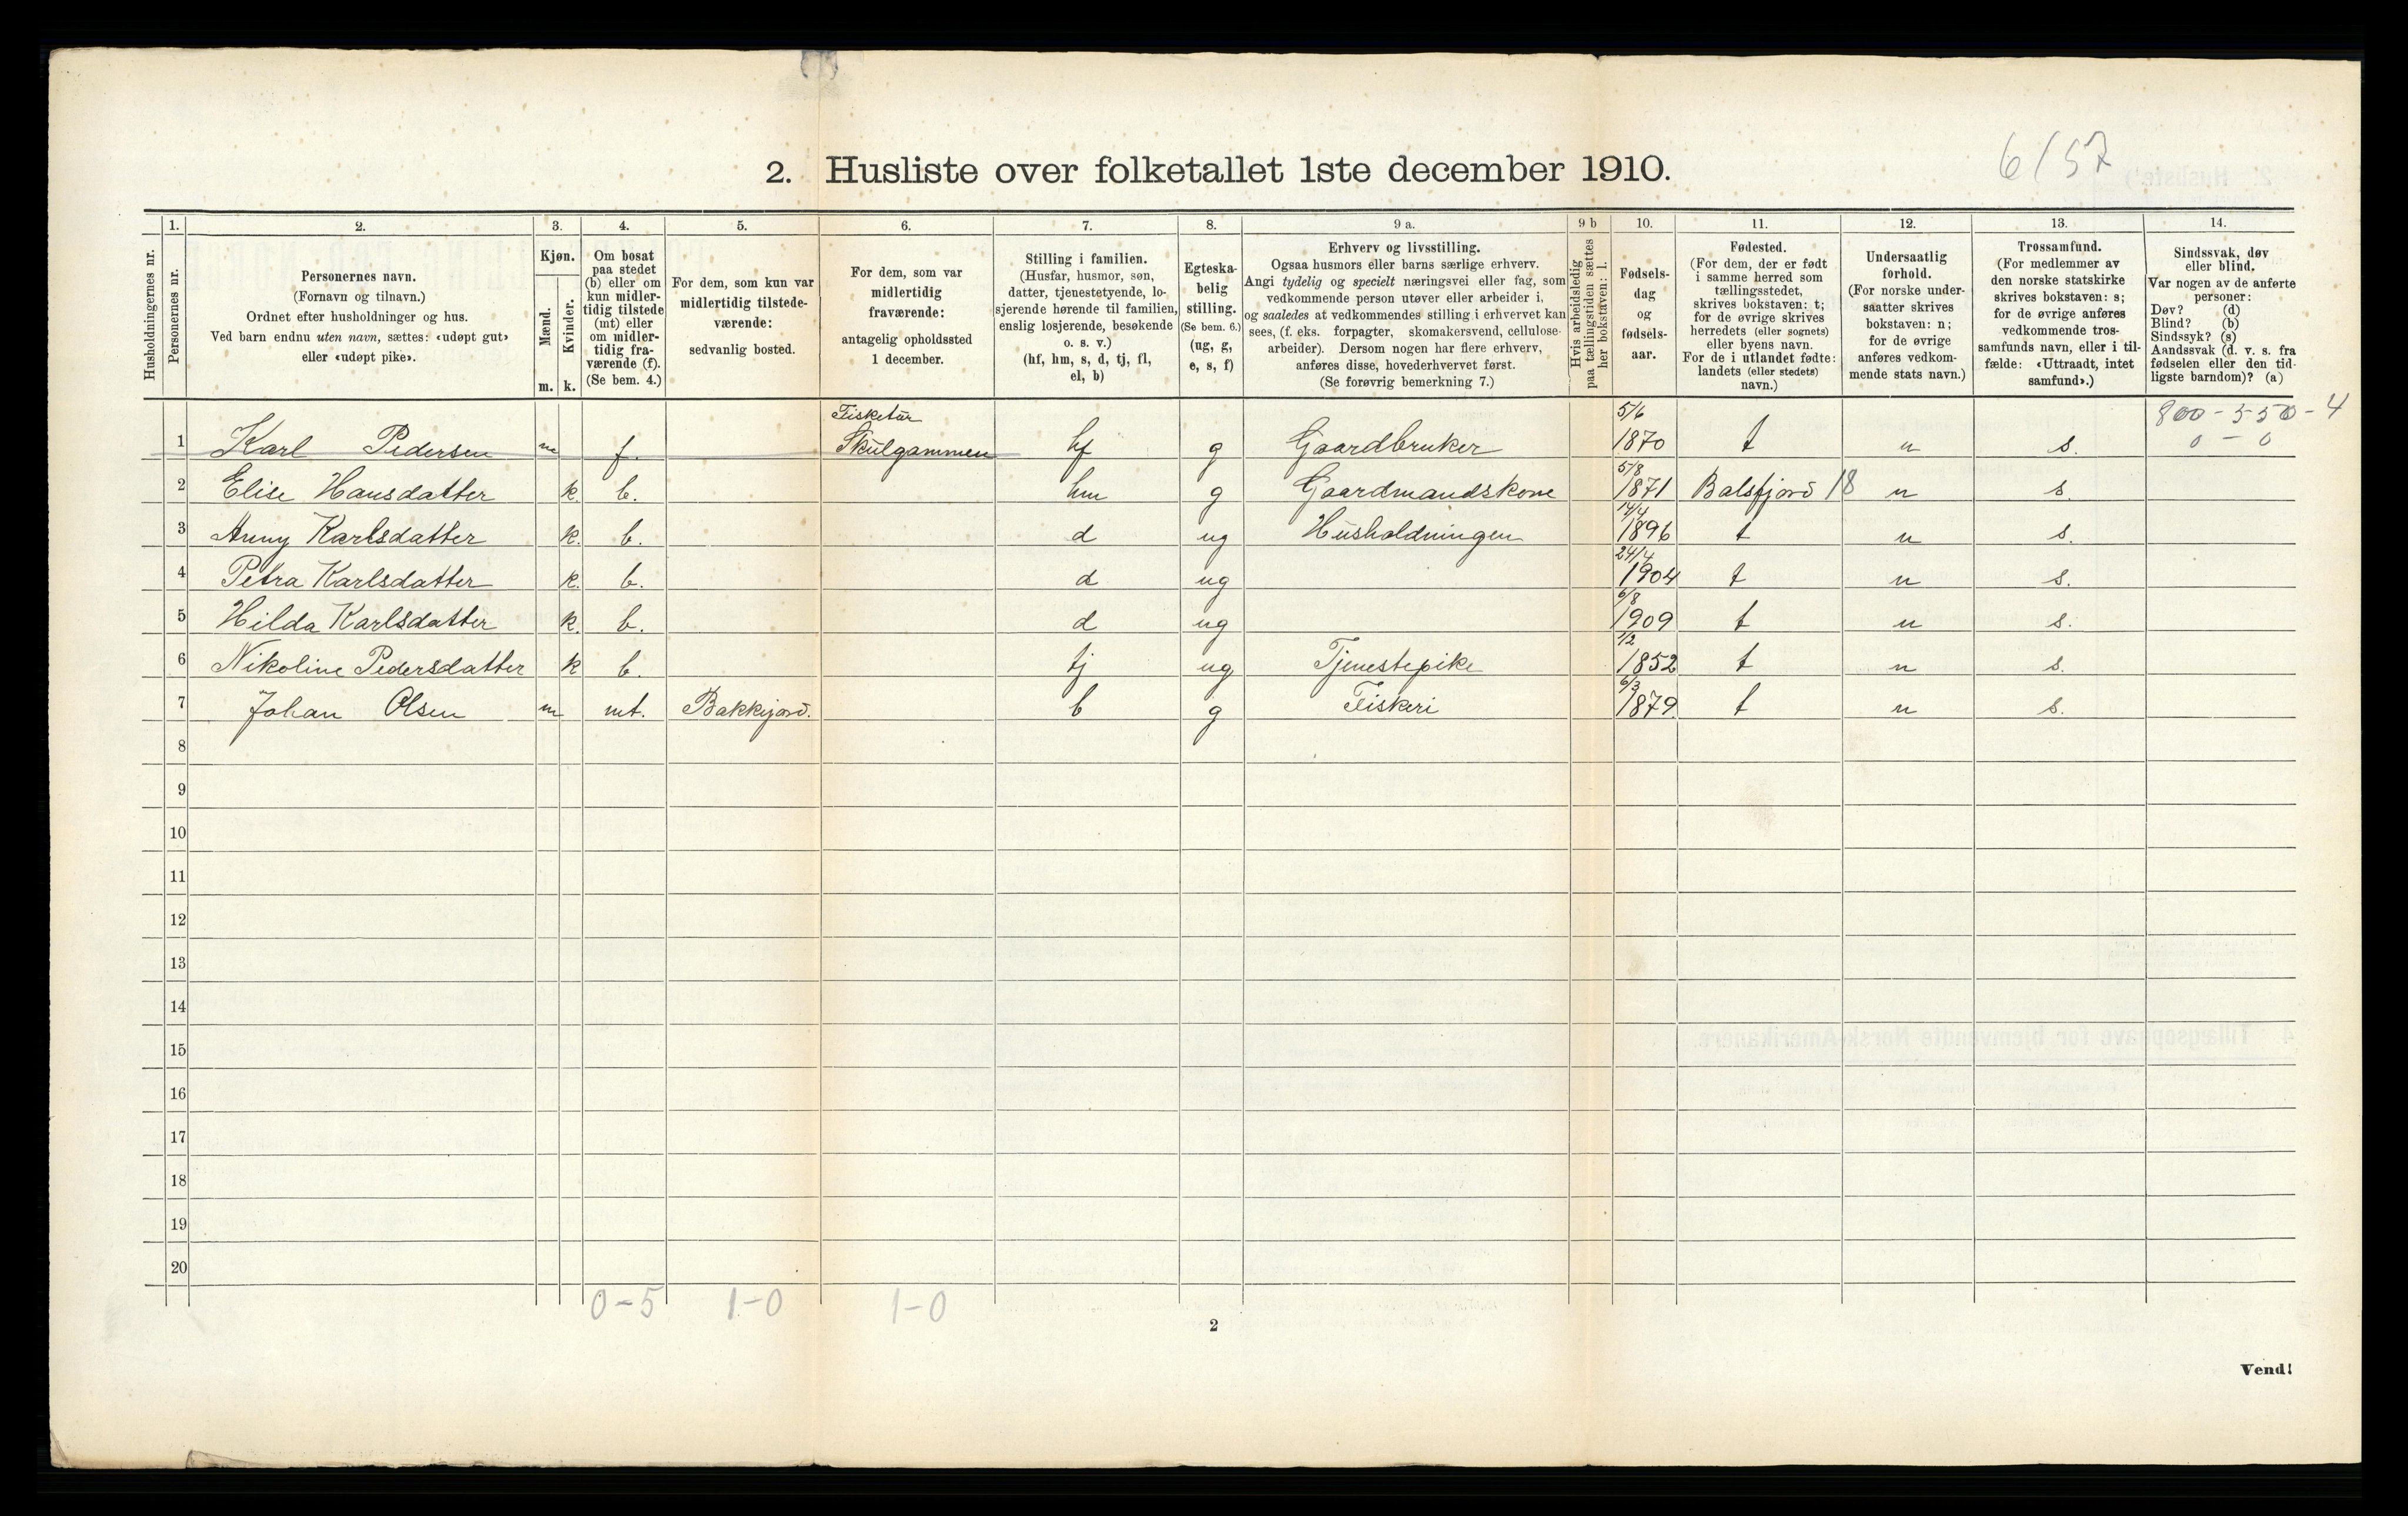 6/57
2. Husliste over folketallet 1ste december 1910.
1. 2. 3. 4. 5. 6. 7. 8. 9 a. 9 b 10. 11. 12. 13. 14.
Husholdningernes nr.
Personernes nr.
Personernes navn.
(Fornavn og tilnavn.)
Ordnet efter husholdninger og hus.
Ved barn endnu uten navn, sættes: «udøpt gut»
eller «udøpt pike».
Kjøn.
Mænd.
Kvinder.
m. k.
Om bosat
paa stedet
(b) eller om
kun midler-
tidig tilstede
(mt) eller
om midler-
tidig fra-
værende (f).
(Se bem. 4.)
For dem, som kun var
midlertidig tilstede-
værende:
sedvanlig bosted.
For dem, som var
midlertidig
fraværende:
antagelig opholdssted
1 december.
Stilling i familien.
(Husfar, husmor, søn,
datter, tjenestetyende, lo-
sjerende hørende til familien,
enslig losjerende, besøkende
o. s. v.)
(hf, hm, s, d, tj, fl,
el, b)
Egteska-
belig
stilling.
(Se bem. 6.)
(ug, g,
e, s, f)
Erhverv og livsstilling.
Ogsaa husmors eller barns særlige erhverv.
Angi tydelig og specielt næringsvei eller fag, som
vedkommende person utøver eller arbeider i,
og saaledes at vedkommendes stilling i erhvervet kan
sees, (f. eks. forpagter, skomakersvend, cellulose-
arbeider). Dersom nogen har flere erhverv,
anføres disse, hovederhvervet først.
(Se forøvrig bemerkning 7.)
Hvis arbeidsledig
paa tællingstiden sættes
her bokstaven: l.
Fødsels-
dag
og
fødsels-
aar.
Fødested.
(For dem, der er født
i samme herred som
tællingsstedet,
skrives bokstaven: t;
for de øvrige skrives
herredets (eller sognets)
eller byens navn.
For de i utlandet fødte:
landets (eller stedets)
navn.)
Undersaatlig
forhold.
(For norske under-
saatter skrives
bokstaven: n;
for de øvrige
anføres vedkom-
mende stats navn.)
Trossamfund.
(For medlemmer av
den norske statskirke
skrives bokstaven: s;
for de øvrige anføres
vedkommende tros-
samfunds navn, eller i til-
fælde: «Uttraadt, intet
samfund».)
Sindssvak, døv
eller blind.
Var nogen av de anførte
personer:
Døv? (d)
Blind? (b)
Sindssyk? (s)
Aandssvak (d. v. s. fra
fødselen eller den tid-
ligste barndom)? (a)
Fisketur 5/6 800-550-4
1 Karl Pedersen m f. Skulgammen hf g Gaardbruker 1870 t n s. 0-0
5/8
2 Elise Hansdatter k. b. hm g Gaardmandskone 1871 Balsfjord 18 n s
14/4
3 Anny Karlsdatter k. b. d ug Husholdningen 1896 t n s.
24/4
4 Petra Karlsdatter k. b. d ug 1904 t n s.
6/8
5 Hilda Karlsdatter k. b. d ug 1909 t n s.
1/2
6 Nikoline Pedersdatter k b. tj ug Tjenestepike 1852 t n s.
6/3
7 Johan Olsen m mt. Bakkejord. b g Fiskeri 1879. t n s.
8
9
10
11
12
13
14
15
16
17
18
19
20
0-5 1-0 1-0
2
Vend!